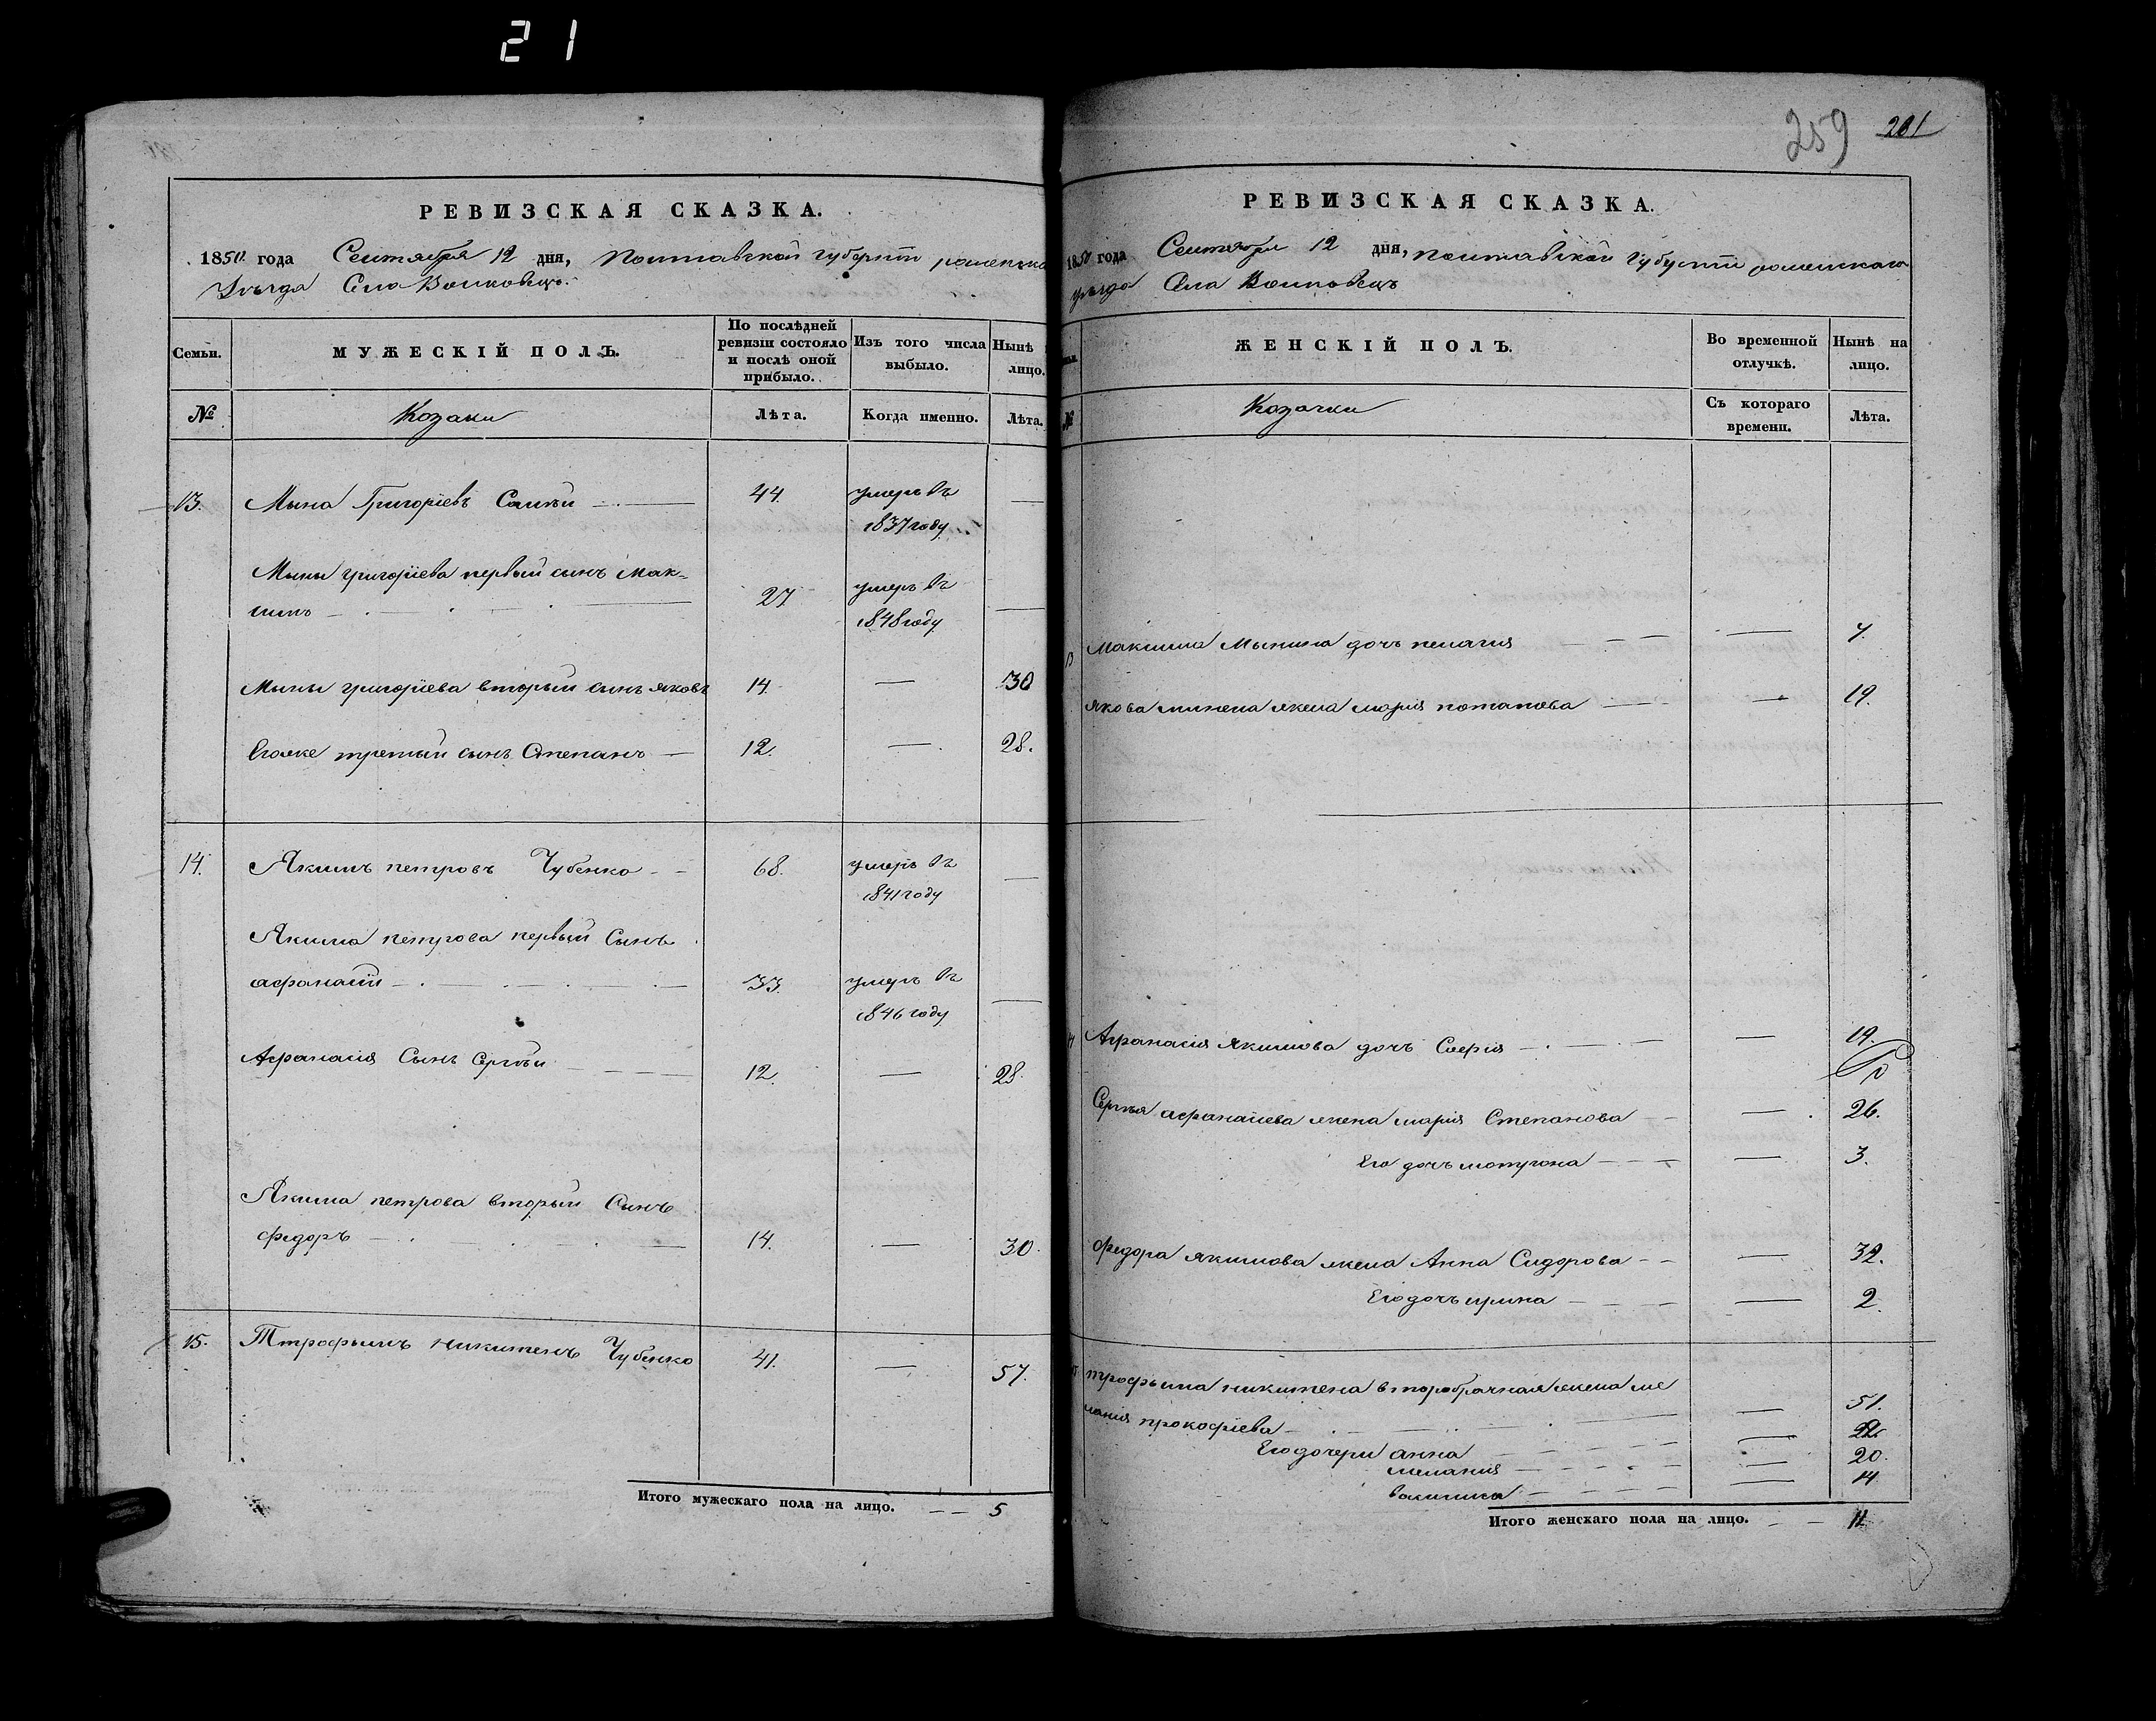 21
РЕВИЗСКАЯ СКАЗКА.
1850 года Сентября 12 дня, Полтавской губерніи роменска
Уѣзда Села Волковецъ.
Семьи.
МУЖЕСКІЙ ПОЛЪ.
По послѣдней ревизіи состояло и послѣ оной прибыло.
Изъ того числа выбыло.
Нынѣ
лицо.
№
Козаки
Лѣта.
Когда именно.
Лѣта.
13. Мына Григоріевъ 44. умеръ въ —
1837 году
Мыны григоріева первый сынъ Мак-
симъ — 27 умеръ въ —
1848 году
Мыны григоріева вторый сынъ яковъ 14. — 30
Егоже третый сынъ Степанъ — 12. — 28.
14. Якимъ петровъ Чубенко 68. умеръ въ —
1841 году
Якима петрова первый Сынъ
афанасій — 33. умеръ въ —
1846 году
Афанасія Сынъ Сергѣй 12. — 28.
Якима петрова вторый Сынъ
федоръ — 14. — 30.
15. Ттрофымъ никитенъ Чубенко 41. — 57.
Итого мужескаго пола на лицо. — — 5
259 261
РЕВИЗСКАЯ СКАЗКА.
1850 года Сентября 12 дня, полтавской губерніи роменскаго
уѣзда Села Волковецъ
ЖЕНСКІЙ ПОЛЪ.
Во временной отлучкѣ.
Нынѣ на лицо.
№
Козачки
Съ котораго времени.
Лѣта.
13 Максима Мынина дочь пелагия — 7.
якова минена жена марія потапова — — 19.
14 Афанасія Якимова дочь Софія — — 19.
Сергѣя афанасіева жена марія Степанова — — 26.
Его дочь мотрона — — 3.
федора якимова жена Анна Сидорова — — 32.
Его дочь ирина — — 2.
трофыма никитена второбрачная жена ме
ланія прокофіева — — 51.
Его дочери анна — 22.
мелания — 20.
14
Итого женскаго пола на лицо. — — 11